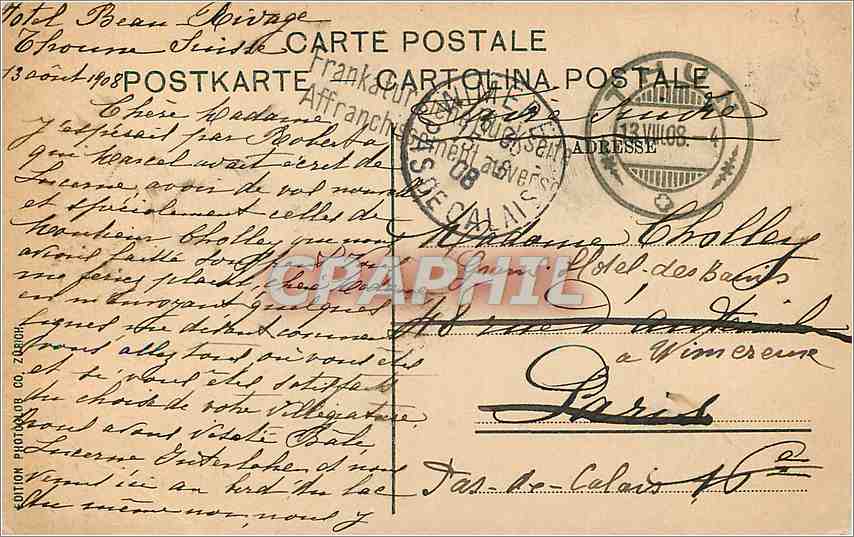 Hotel Beau Rivage
Thoune Suisse
13 août 1908
CARTE POSTALE
POSTKARTE CARTOLINA POSTALE
Frankatur Rückseite
Affranchissement au verso
WIMEREUX
PAS DE CALAIS
08
THUN
13.VIII.08. - 4
ADRESSE
Chère Madame
J'espérais par Roberta
que Marcel avait écrit de
Lucerne, avoir de vos nouvelles
et spécialement celles de
Monsieur Cholley que nous
avons
me feriez plaisir, chère Madame
en m'envoyant quelques
lignes me disant comment
vous allez tous où vous êtes
et si vous êtes satisfaits
du choix de votre villégiature.
Nous avons visité Bâle
Lucerne Interlaken et nous
ici au bord du lac
du même nom, nous y
Madame Cholley
Grand Hotel-des Bains
48 rue d'Auteuil
a Wimereux
Paris
Pas-de-Calais 16e
EDITION PHOTOGLOB CO. ZÜRICH.
CPAPHIL